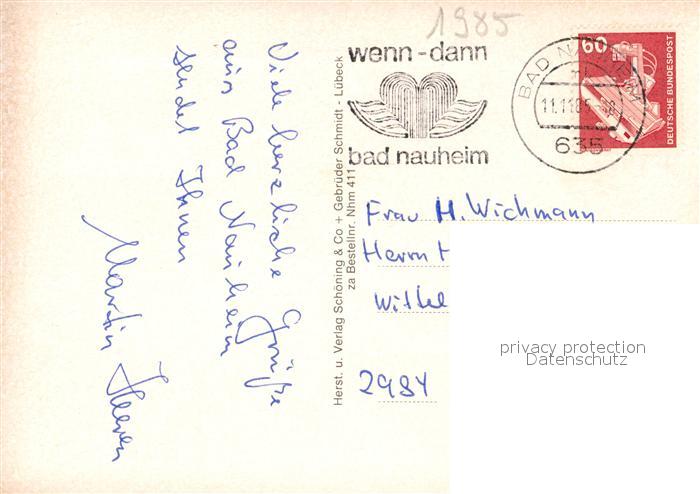 1985
wenn-dann
bad nauheim
BAD NAUHEIM 1
11.11.85
635
60
DEUTSCHE BUNDESPOST
Viele herzliche Grüße
aus Bad Nauheim
sendet Ihnen
Martin
Herst. u. Verlag Schöning & Co + Gebrüder Schmidt - Lübeck
za Bestellnr. Nhm 411
Frau H. Wichmann
Herrn H
Withel
2984
privacy protection
Datenschutz